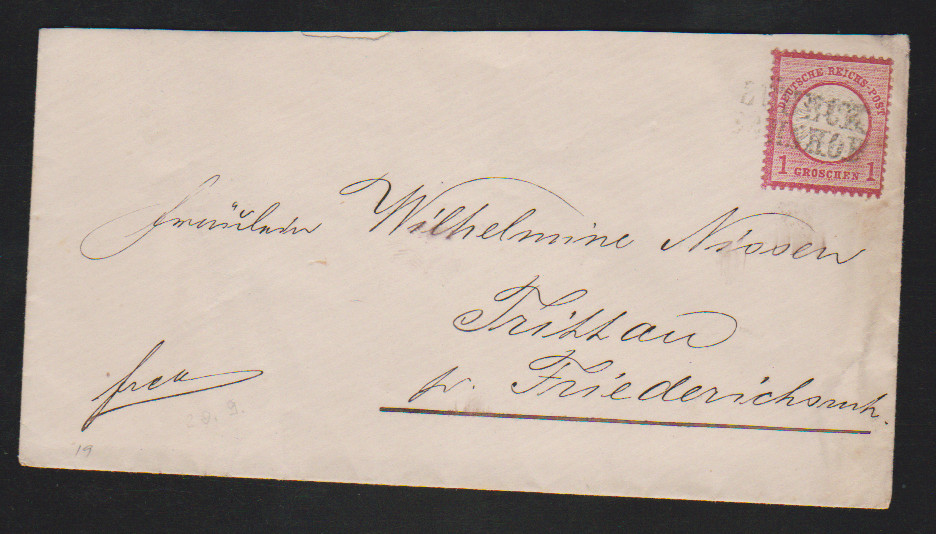 DEUTSCHE REICHS-POST
1 GROSCHEN 1
Fräulein Wilhelmine Nissen
Trittau
p. Friederichsruh.
frco
20. 9.
19